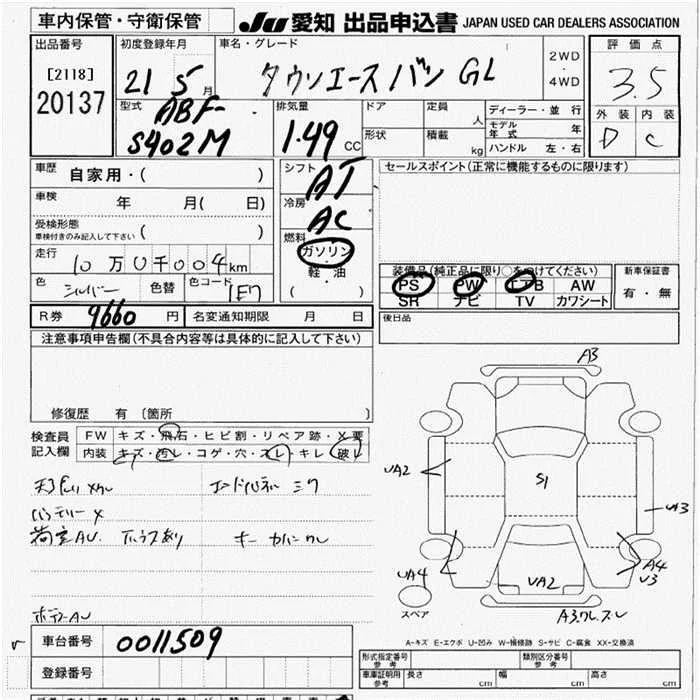 車内保管・守衛保管
JU 愛知 出品申込書 JAPAN USED CAR DEALERS ASSOCIATION
出品番号
[2118]
20137
初度登録年月
21 5月
車名・グレード
タウンエースバン GL
2WD
・
4WD
評価点
3.5
外装 内装
D C
型式
ABF-
S402M
排気量
1.49 CC
ドア
形状
定員 人
積載 kg
ディーラー・並行
モデル年式 年
ハンドル 左・右
車歴 自家用・( )
車検 年 月( 日)
受検形態
車検付きのみ記入して下さい ( )
走行 10万0千004km
色 シルバー 色替 色コード 1E7
シフト AT
冷房 AC
燃料
ガソリン
軽・油
( )
セールスポイント(正常に機能するものに限ります)
装備品(純正品に限り○をつけてください)
PS PW エアB AW
SR ナビ TV カワシート
新車保証書
有・無
R券 9660 円 名変通知期限 月 日
後日品
注意事項申告欄(不具合内容等は具体的に記入して下さい)
修復歴 有 〔箇所 〕
検査員
記入欄
FW キズ・飛石・ヒビ割・リペア跡・X要
内装 キズ・汚レ・コゲ・穴・スレ・キレ・破レ
バッテリーX
A3
UA2
S1
UA3
UA4
UA2
A4
U3
スペア
A3ワレ.スレ
A-キズ E-エクボ U-凹み W-補修跡 S-サビ C-腐食 XX-交換済
車台番号 0011509
登録番号
形式指定番号
参考
類別区分番号
参考
車庫証明用
参考
長さ cm 幅 cm 高さ cm